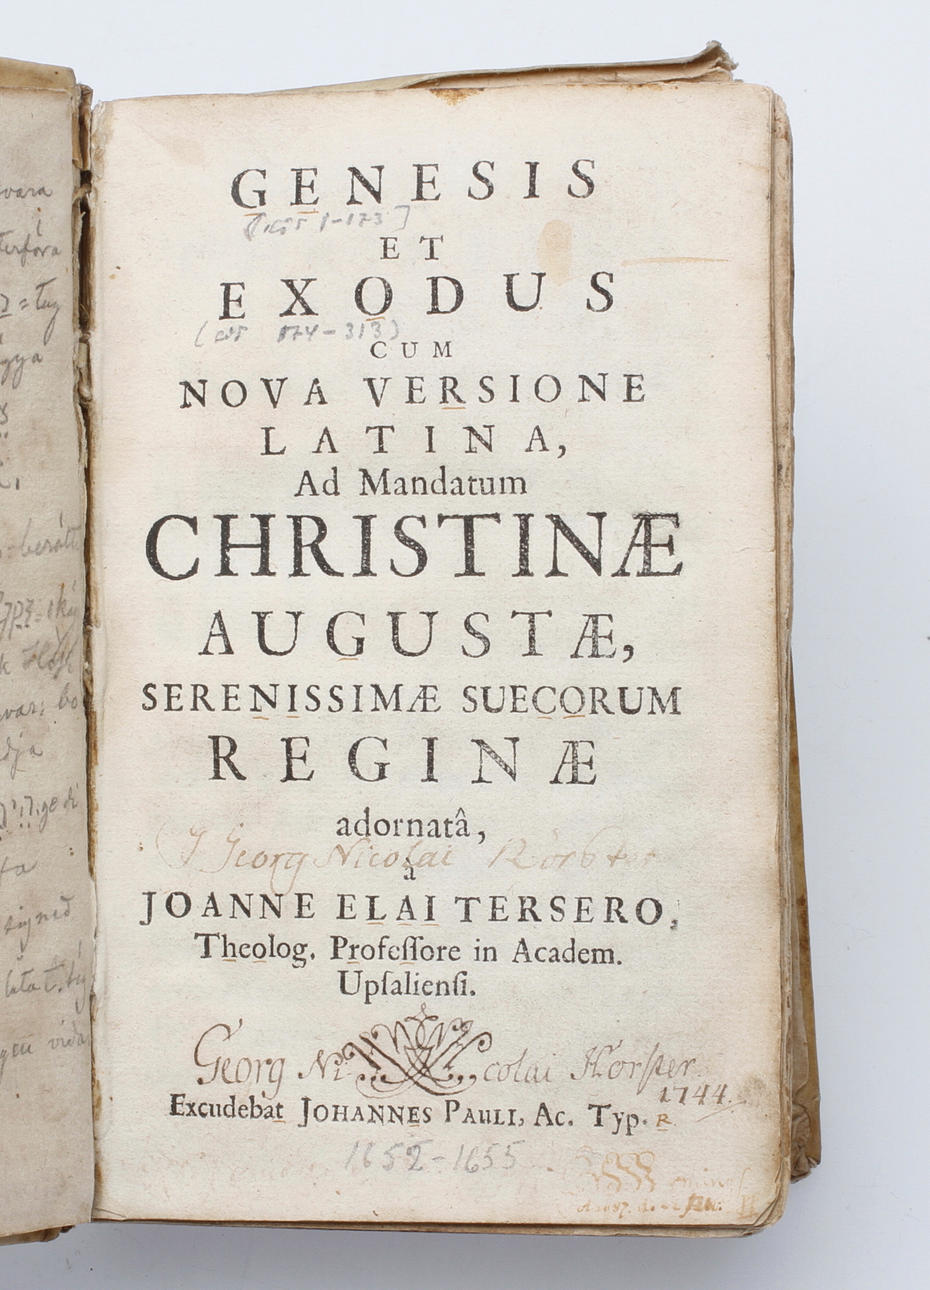 GENESIS
ET
EXODUS
174-313)
CUM
NOVA VERSIONE
LATINA,
Ad Mandatum
CHRISTINÆ
AUGUSTÆ,
SERENISSIMÆ SUECORUM
REGINÆ
adornatâ,
Georg Nicolai
a
JOANNE ELAI TERSERO,
Theolog. Profeſſore in Academ.
Upſalienſi.
Georg Nicolai Horster
1744.
Excudebat JOHANNES PAULI, Ac. Typ. R
1652-1655
vara
gya